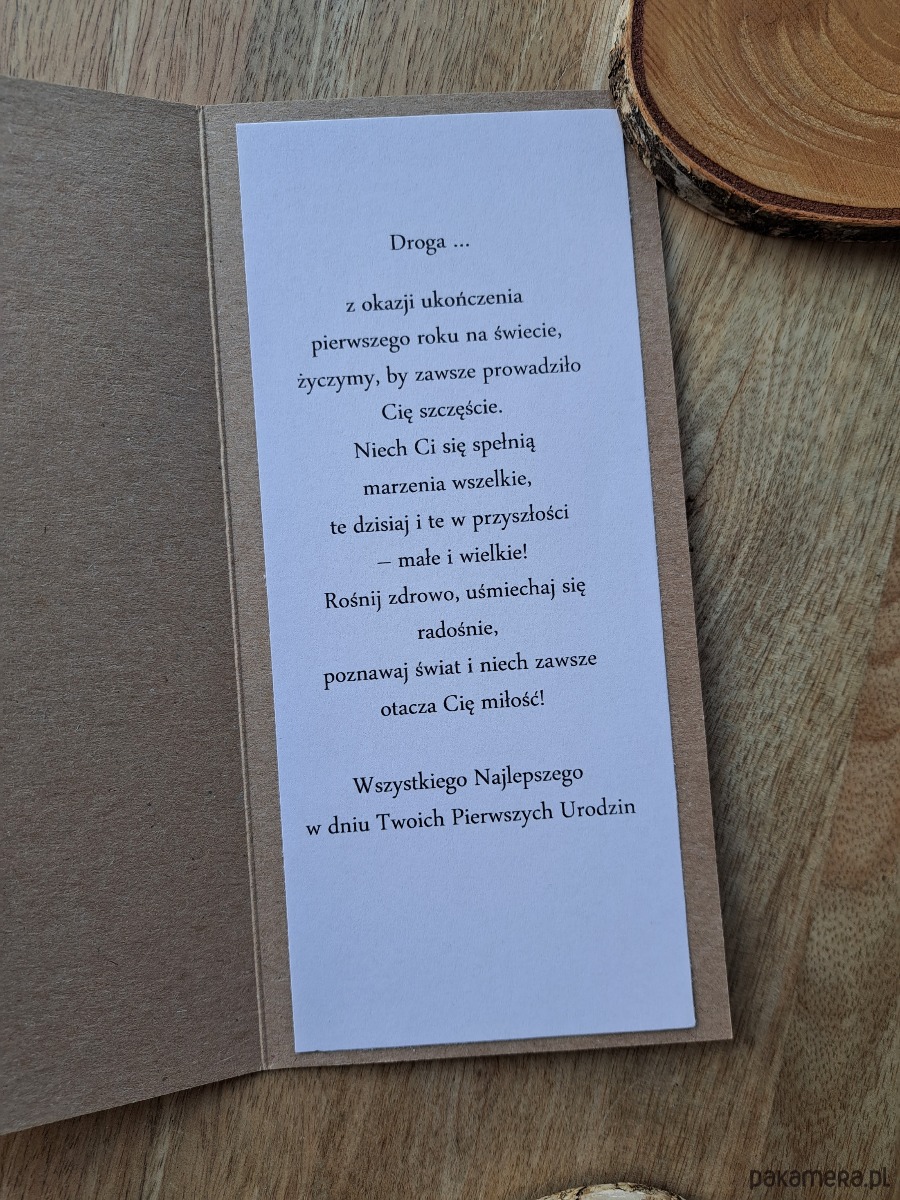 Droga ...
z okazji ukończenia
pierwszego roku na świecie,
życzymy, by zawsze prowadziło
Cię szczęście.
Niech Ci się spełnią
marzenia wszelkie,
te dzisiaj i te w przyszłości
– małe i wielkie!
Rośnij zdrowo, uśmiechaj się
radośnie,
poznawaj świat i niech zawsze
otacza Cię miłość!
Wszystkiego Najlepszego
w dniu Twoich Pierwszych Urodzin
pakamera.pl